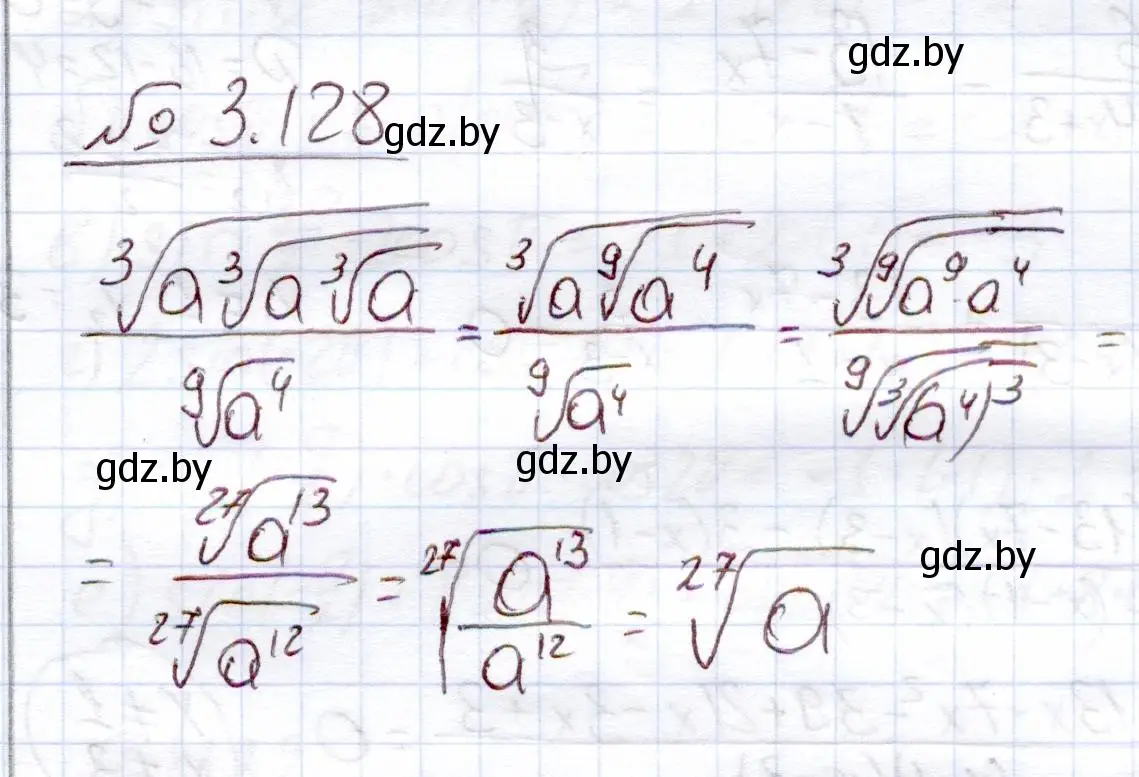 gdz.by
№ 3.128
gdz.by
∛(a∛(a∛a)) / ⁹√(a⁴) = ∛(a ⁹√(a⁴)) / ⁹√(a⁴) = ∛(⁹√(a⁹·a⁴)) / ⁹√(∛((a⁴)³)) =
gdz.by
gdz.by
= ²⁷√(a¹³) / ²⁷√(a¹²) = ²⁷√(a¹³/a¹²) = ²⁷√a
gdz.by